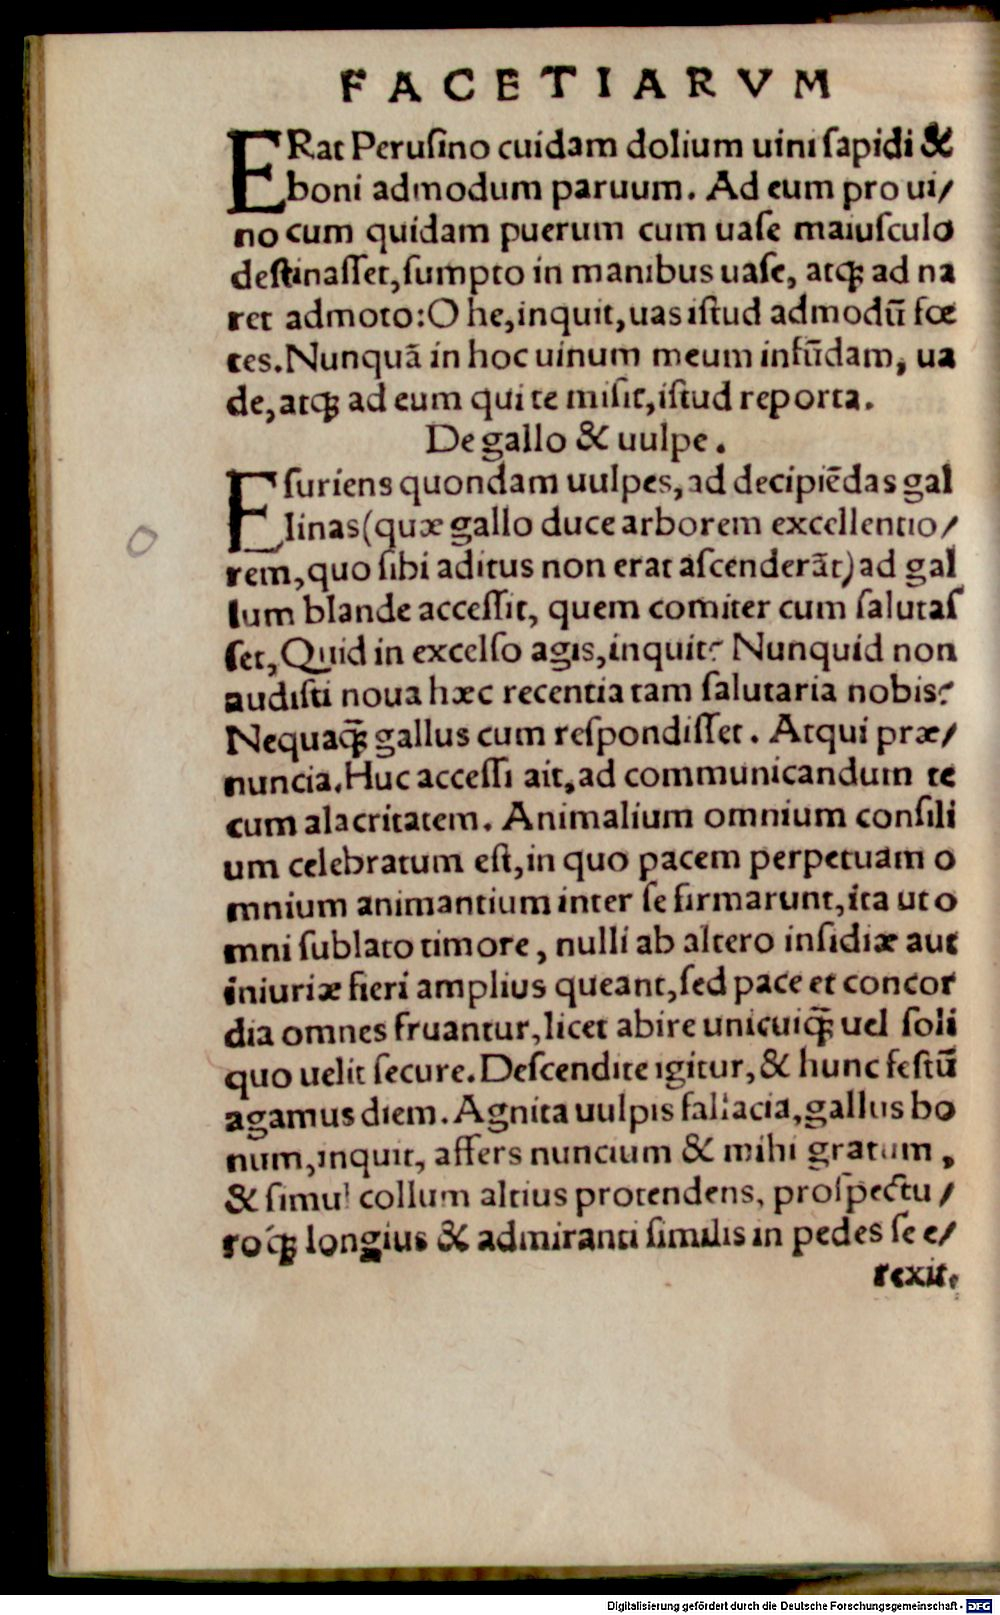 FACETIARVM
ERat Perusino cuidam dolium uini sapidi &
boni admodum paruum. Ad eum pro ui/
no cum quidam puerum cum uase maiusculo
destinasset, sumpto in manibus uase, atq; ad na
ret admoto: O he, inquit, uas istud admodū fœ
tes. Nunquā in hoc uinum meum infūdam, ua
de, atq; ad eum qui te misit, istud reporta.
De gallo & uulpe.
Esuriens quondam uulpes, ad decipiēdas gal
linas (quæ gallo duce arborem excellentio/
rem, quo sibi aditus non erat ascenderāt) ad gal
lum blande accessit, quem comiter cum salutas
set, Quid in excelso agis, inquit? Nunquid non
audisti noua hæc recentia tam salutaria nobis?
Nequaq̃; gallus cum respondisset. Atqui præ/
nuncia. Huc accessi ait, ad communicandum te
cum alacritatem. Animalium omnium consili
um celebratum est, in quo pacem perpetuam o
mnium animantium inter se firmarunt, ita ut o
mni sublato timore, nulli ab altero insidiæ aut
iniuriæ fieri amplius queant, sed pace et concor
dia omnes fruantur, licet abire unicuiq̃; uel soli
quo uelit secure. Descendite igitur, & hunc festū
agamus diem. Agnita uulpis fallacia, gallus bo
num, inquit, affers nuncium & mihi gratum,
& simul collum altius protendens, prospectu/
roq́; longius & admiranti similis in pedes se e/
rexit.
Digitalisierung gefördert durch die Deutsche Forschungsgemeinschaft - DFG